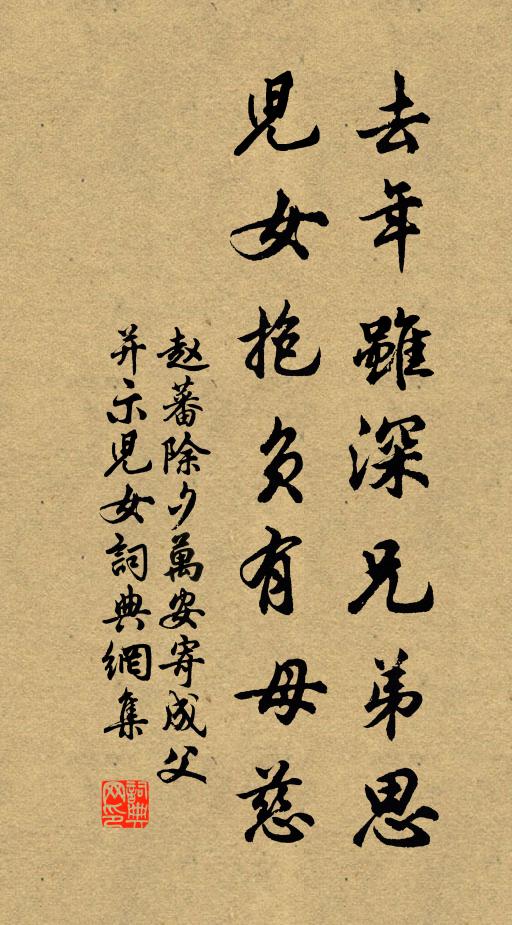 去年雖深兄弟思
兒女抱負有母慈
赵蕃除夕萬安寄成父
并示兒女詞典網集
詞典网印